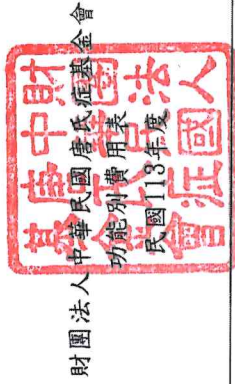 財團法人中華民國唐氏症基金會
功能別費用表
民國113年度
財團法人
中華民國
唐氏症
基金會